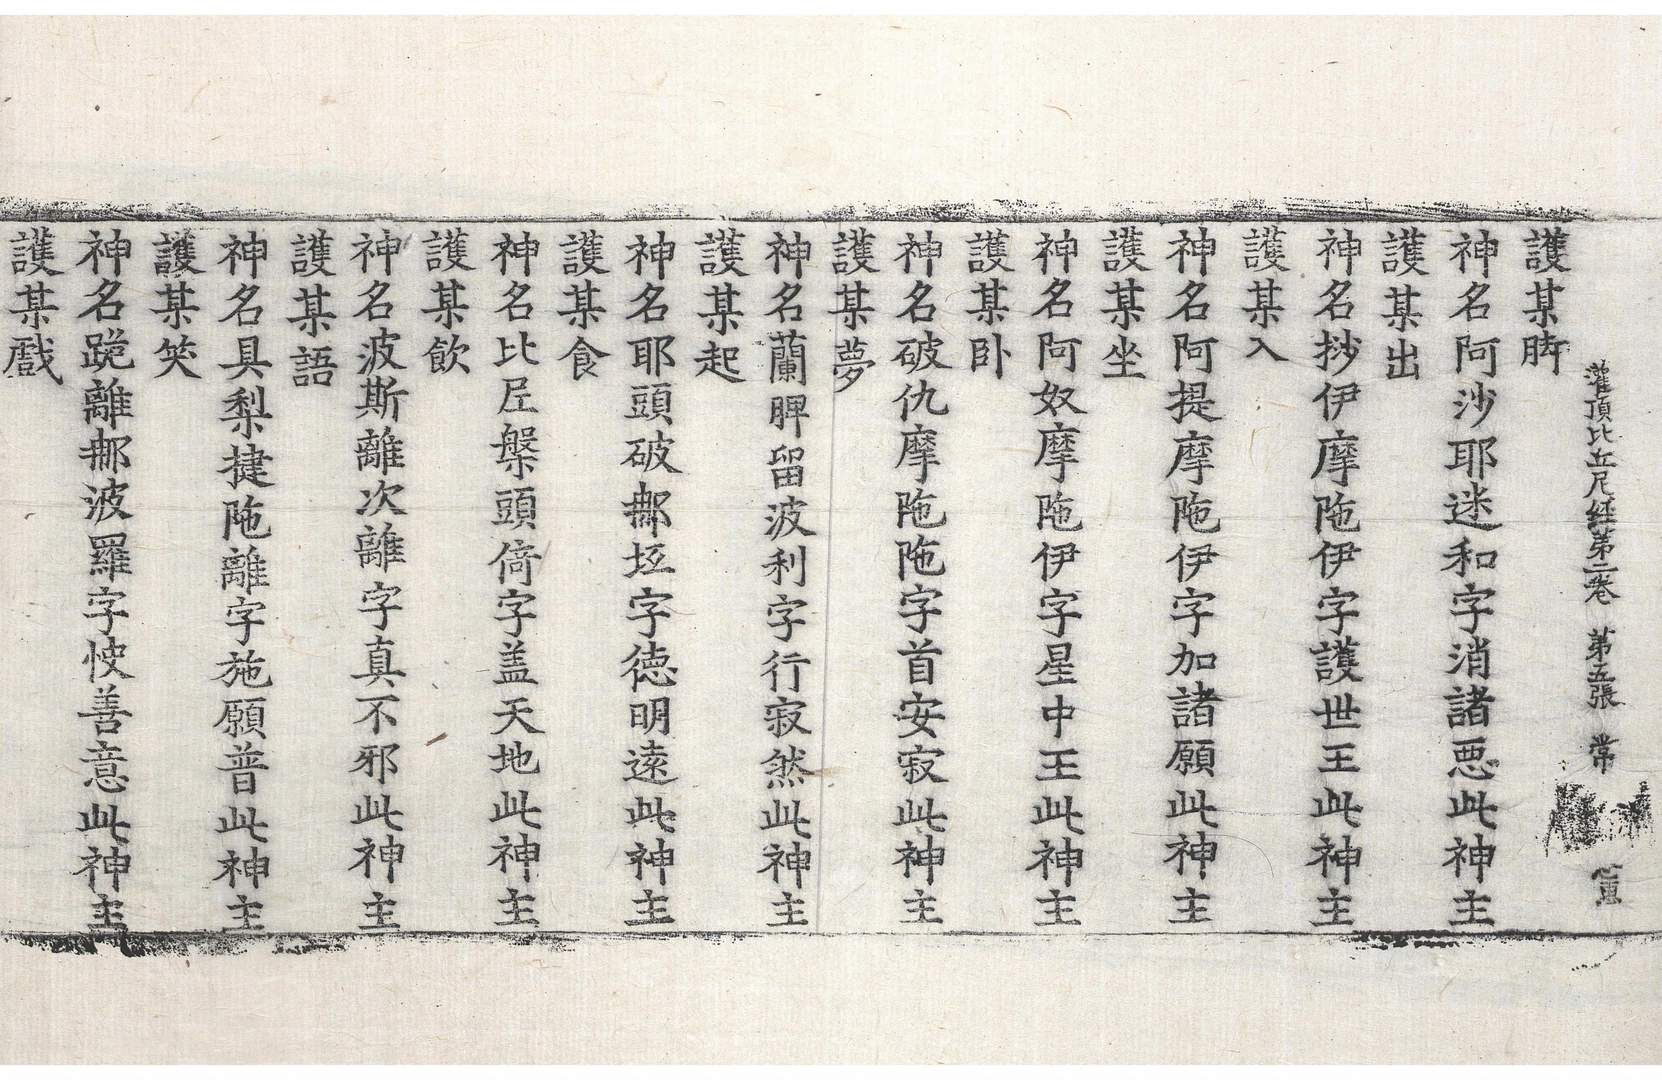 灌頂比丘尼經第二卷　第五張　常
護某脚
神名阿沙耶迷和字消諸惡此神主
護某出
神名抄伊摩陁伊字護世王此神主
護某入
神名阿提摩陁伊字加諸願此神主
護某坐
神名阿奴摩陁伊字星中王此神主
護某卧
神名破仇摩陁陁字首安寂此神主
護某夢
神名蘭脾留波利字行寂然此神主
護某起
神名耶頭破㖠坻字德明遠此神主
護某食
神名比𡊮槃頭㑸字盖天地此神主
護某飲
神名波斯離次離字真不邪此神主
護某語
神名具梨揵陁離字施願普此神主
護某笑
神名跪離㖠波羅字快善意此神主
護某戲